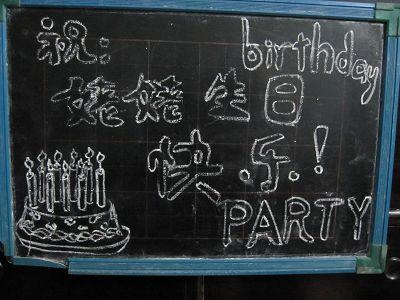 祝: birthday
姥姥生日
快乐!
PARTY